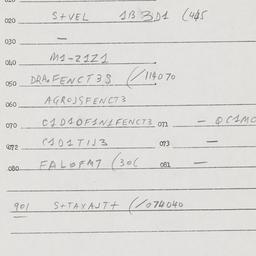 020 S+VEL 1B3D1 (445
030 —
040 M1-21Z1
050 DRA.FENCT3S (/114070
060 AGROJSFENCT3
070 C1D1OF1N1FENCT3 071 — 
072 C1D1TIJ3 073 —
080 FALOFM7 (30( 081 —
901 S+TAXAJT+ (/074040